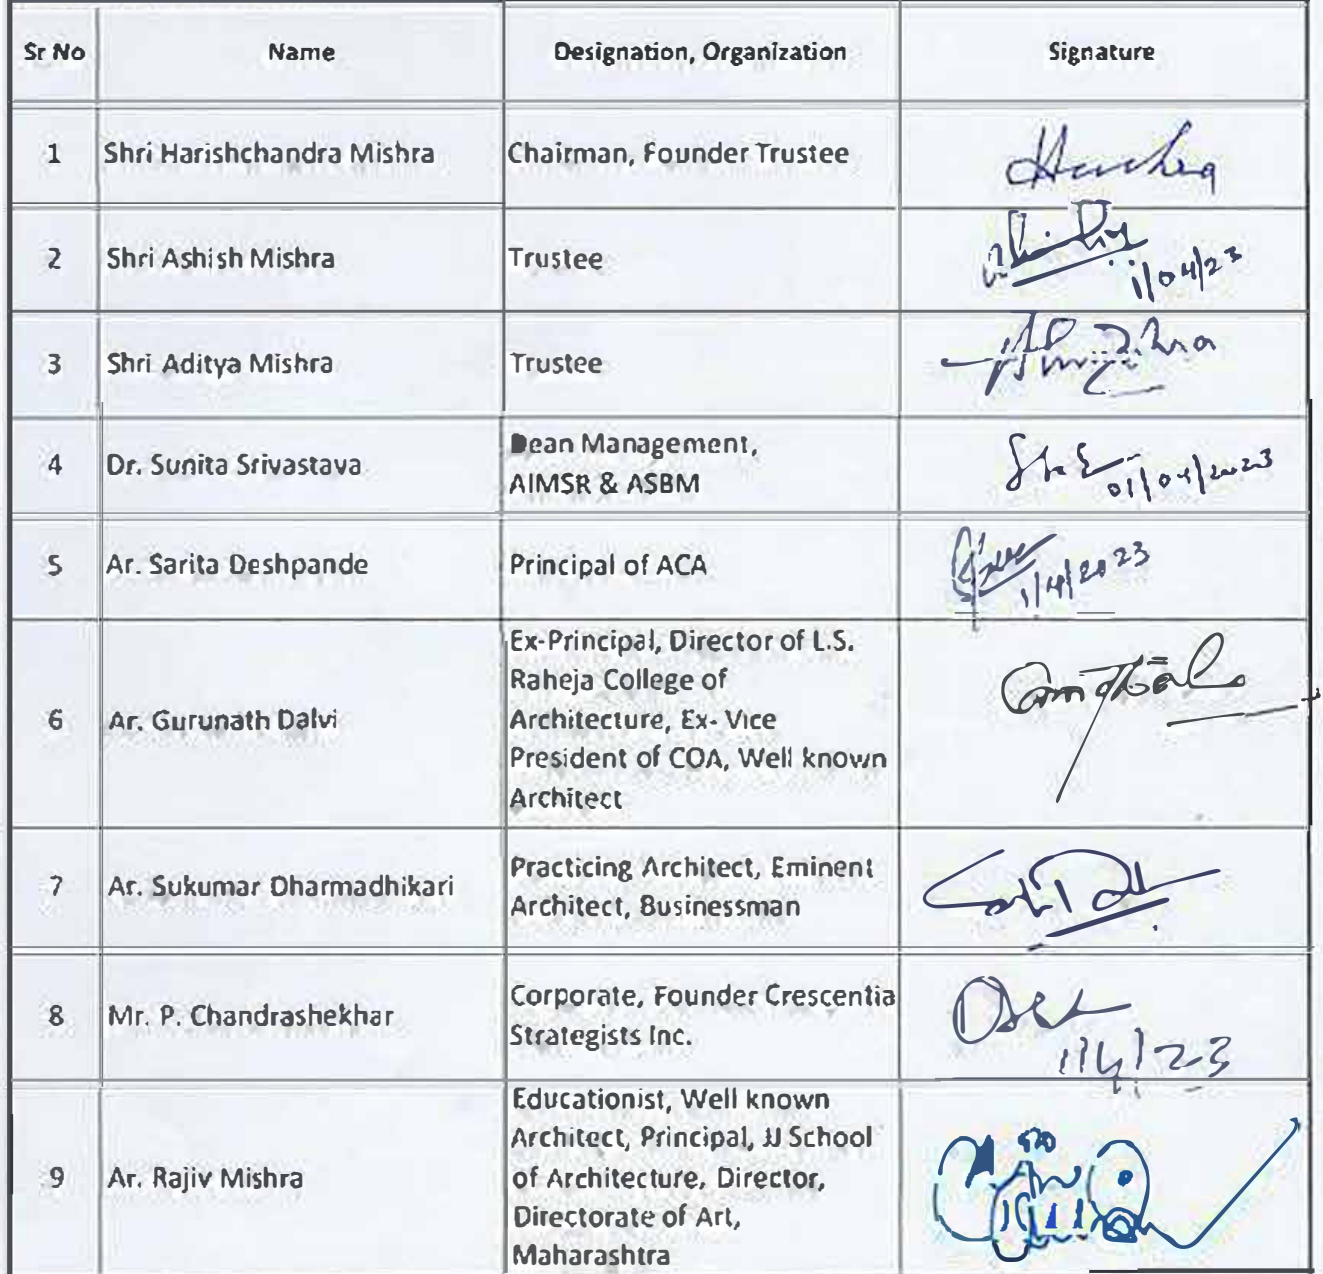 Sr No Name Designation, Organization Signature
1 Shri Harishchandra Mishra Chairman, Founder Trustee
2 Shri Ashish Mishra Trustee
1/04/23
3 Shri Aditya Mishra Trustee
4 Dr. Sunita Srivastava Dean Management,
AIMSR & ASBM
01/04/2023
5 Ar. Sarita Deshpande Principal of ACA
1/4/2023
Ex-Principal, Director of L.S.
Raheja College of
6 Ar. Gurunath Dalvi Architecture, Ex- Vice
President of COA, Well known
Architect
7 Ar. Sukumar Dharmadhikari Practicing Architect, Eminent
Architect, Businessman
8 Mr. P. Chandrashekhar Corporate, Founder Crescentia
Strategists Inc.
1/4/23
Educationist, Well known
Architect, Principal, JJ School
9 Ar. Rajiv Mishra of Architecture, Director,
Directorate of Art,
Maharashtra